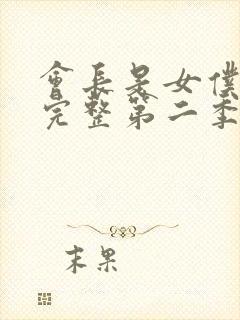 會長是女僕
完整第二季
末果